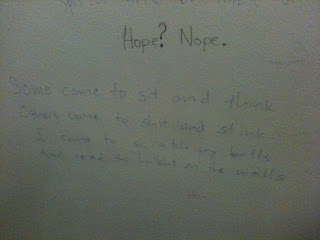 Hope? Nope.
Some come to sit and think
Others come to shit and stink
I come to scratch my balls
and read the on the walls